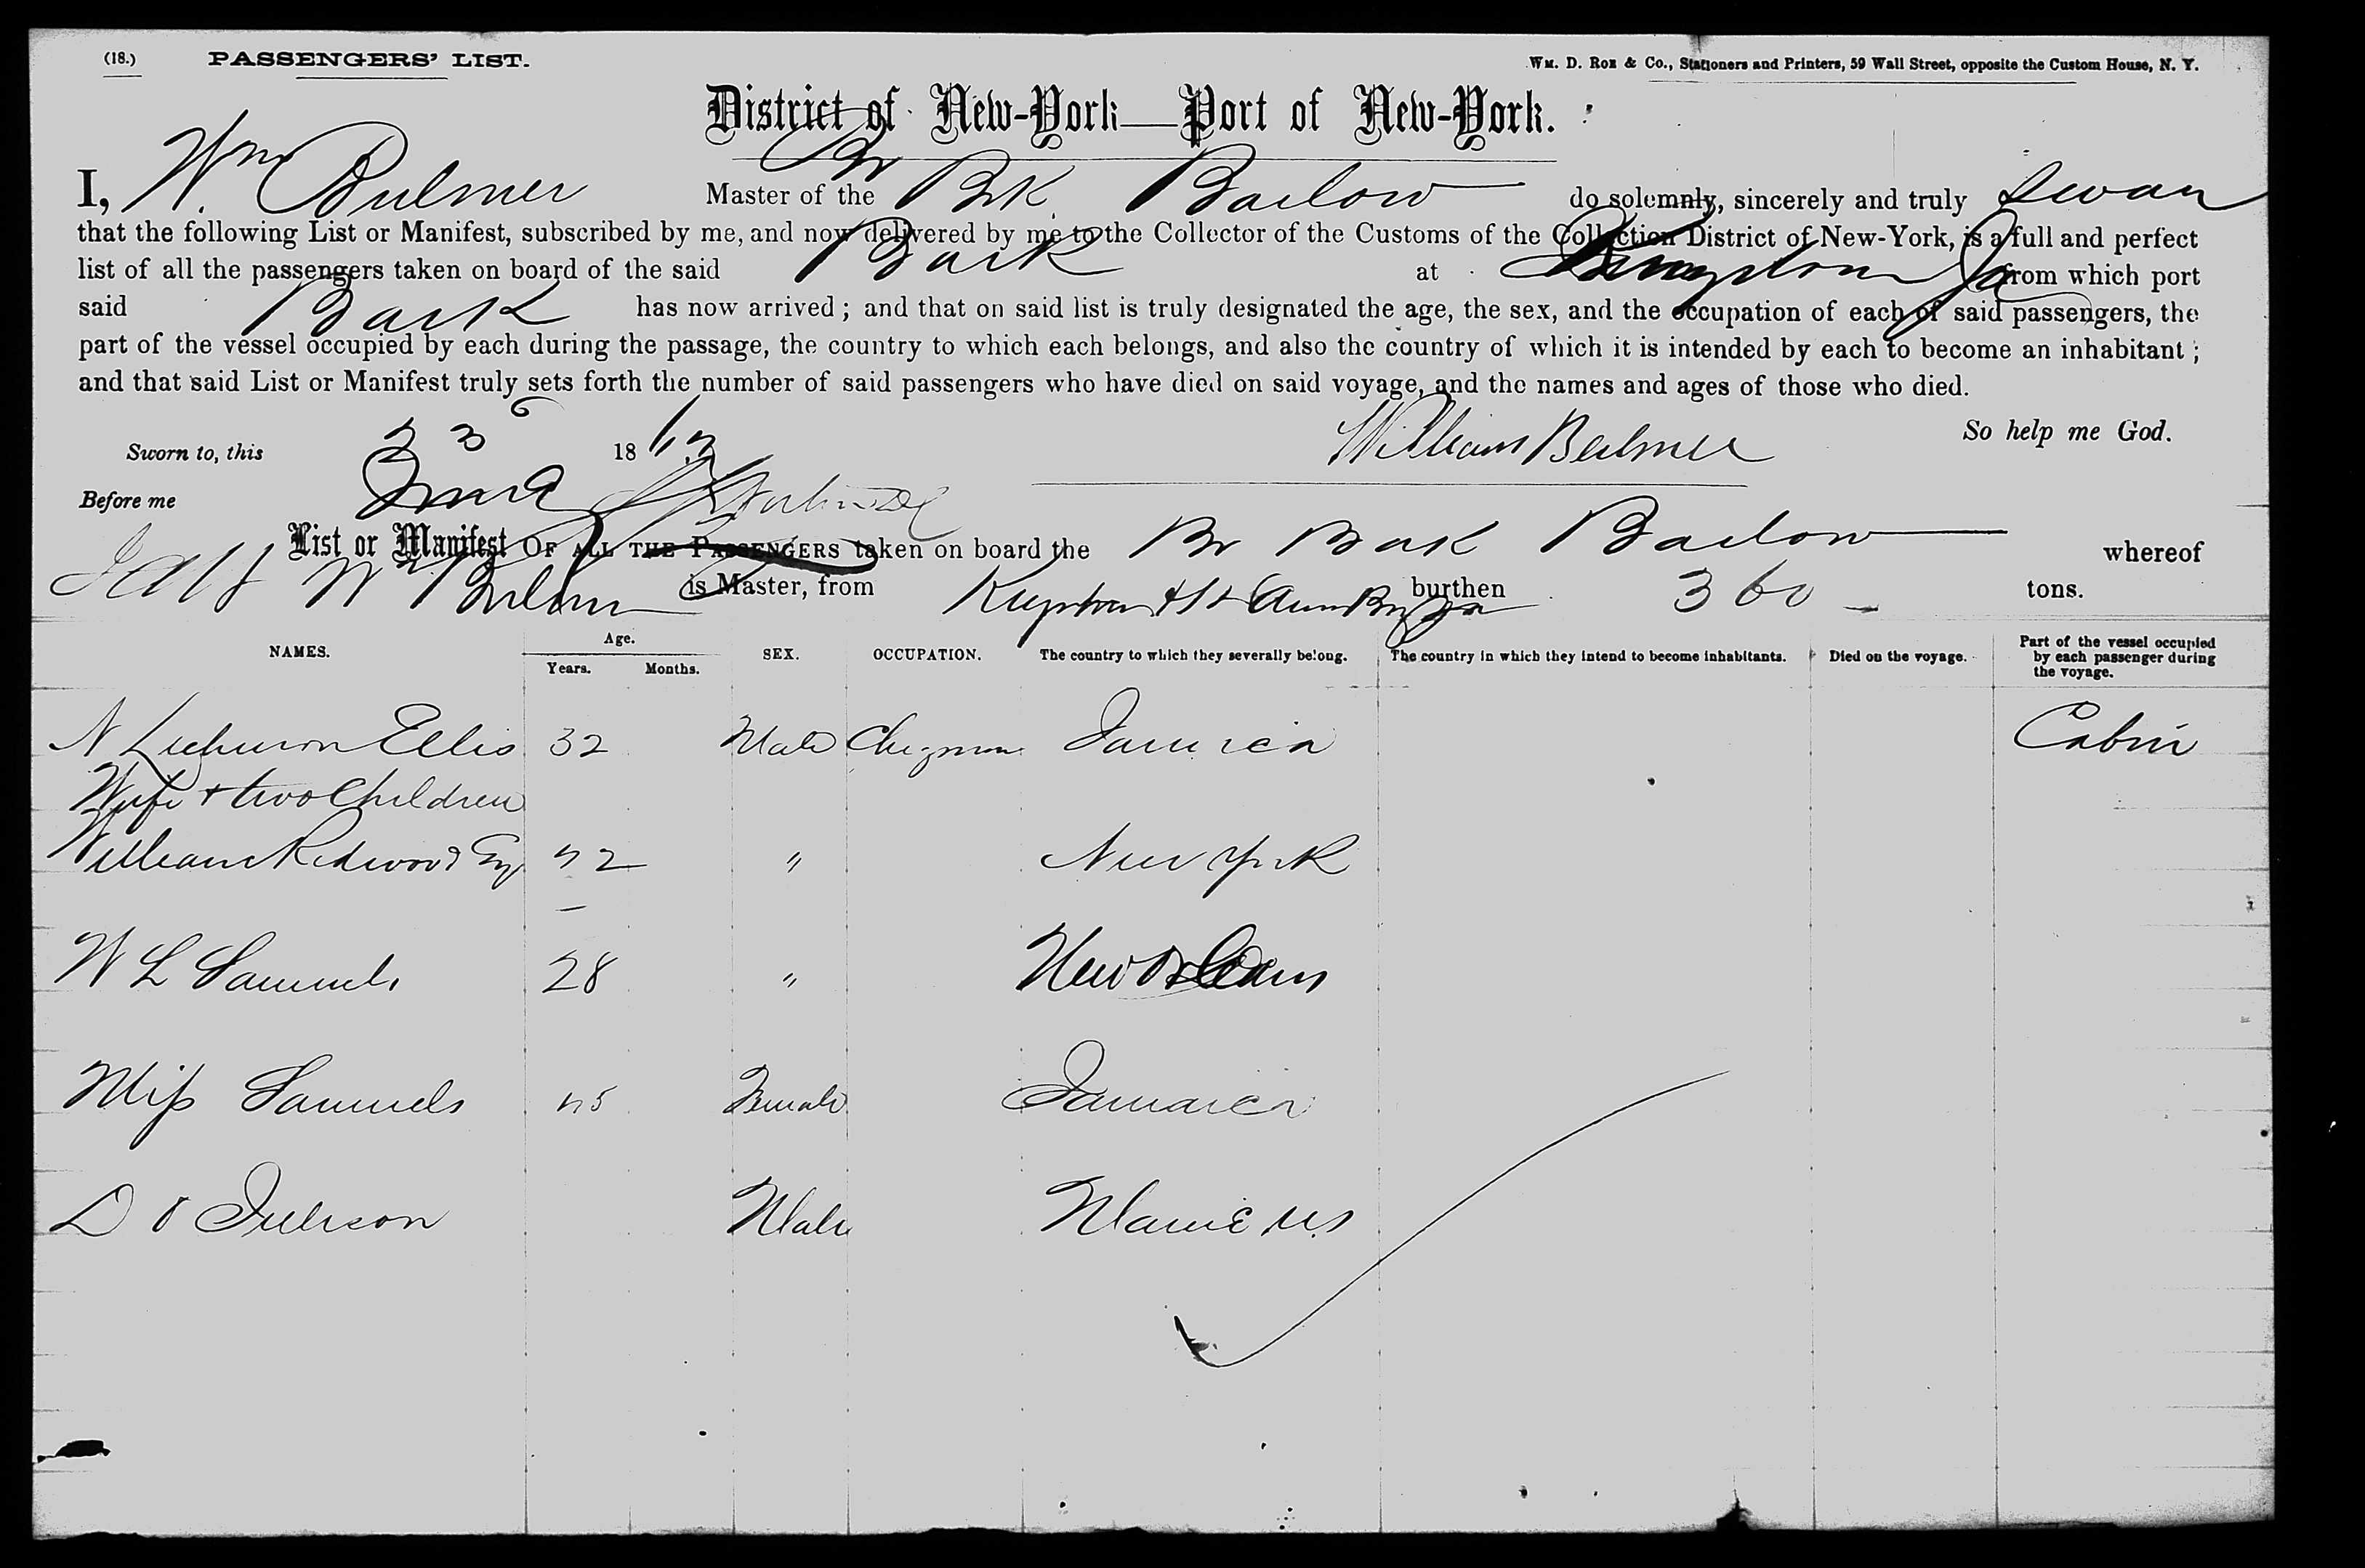 (18.) PASSENGERS' LIST. Wm. D. Roe & Co., Stationers and Printers, 59 Wall Street, opposite the Custom House, N. Y.
District of New-York—Port of New-York.
I, Wm Bulmer Master of the Br Bk Barlow do solemnly, sincerely and truly swear
that the following List or Manifest, subscribed by me, and now delivered by me to the Collector of the Customs of the Collection District of New-York, is a full and perfect
list of all the passengers taken on board of the said Bark at Kingston Ja from which port
said Bark has now arrived; and that on said list is truly designated the age, the sex, and the occupation of each of said passengers, the
part of the vessel occupied by each during the passage, the country to which each belongs, and also the country of which it is intended by each to become an inhabitant;
and that said List or Manifest truly sets forth the number of said passengers who have died on said voyage, and the names and ages of those who died.
So help me God.
Sworn to, this 23 18 William Bulmer
Before me
List or Manifest OF ALL THE PASSENGERS taken on board the Br Bark Barlow whereof
Wm Bulmer is Master, from Kingston & St Anns Bay Ja burthen 360 tons.
NAMES. Age. Years. Months. SEX. OCCUPATION. The country to which they severally belong. The country in which they intend to become inhabitants. Died on the voyage. Part of the vessel occupied by each passenger during the voyage.
N Ellis 32 Male Clergman Jamaica Cabin
Wife & two Children
William Redwood Esq 42 " New York
W L Samuels 28 " New Orleans
Miss Samuels 45 Female Jamaica
D Male Maine U.S